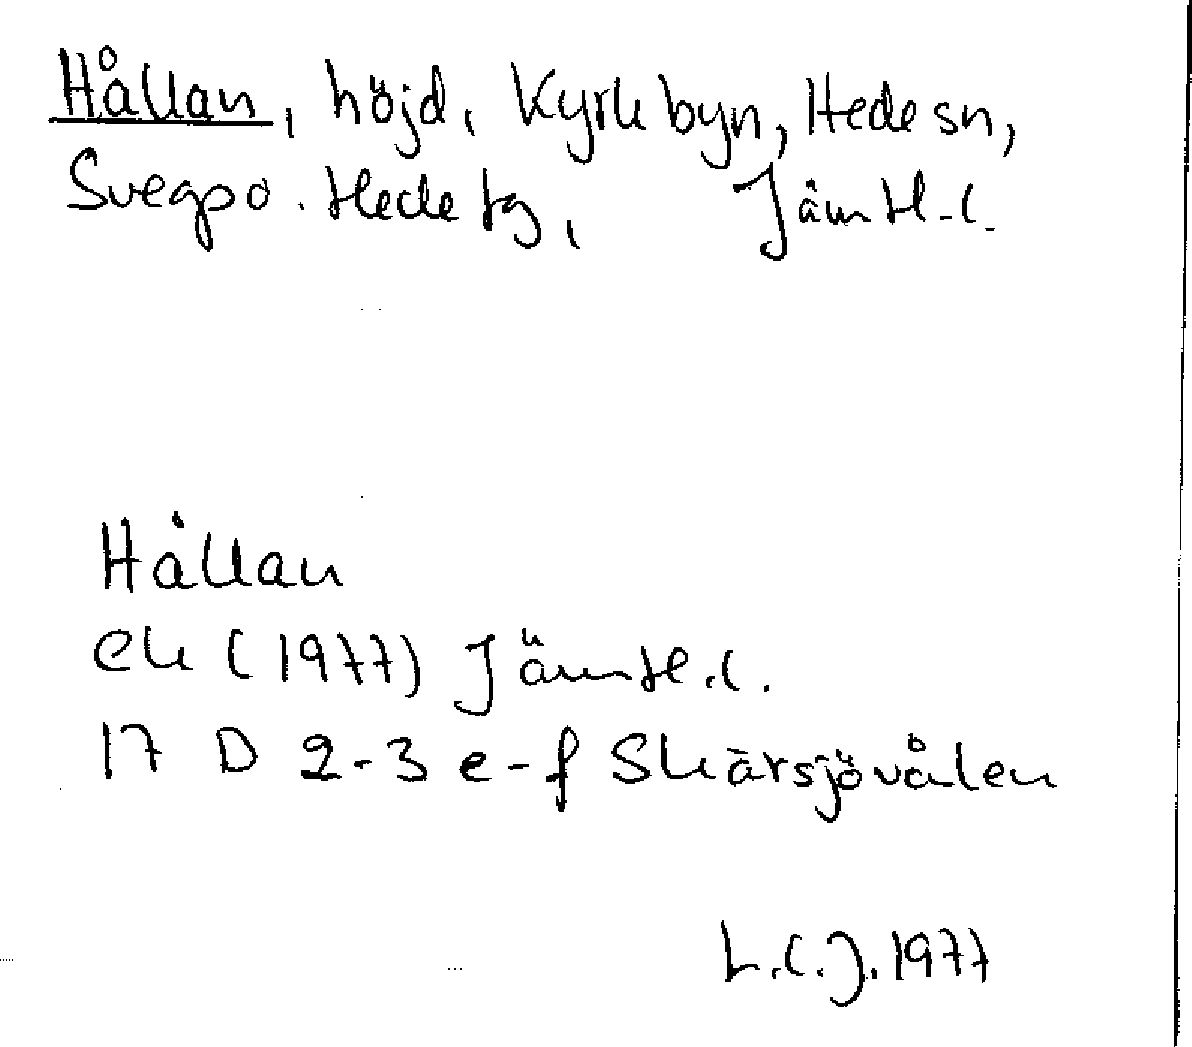 Hållan, höjd, Kyrkbyn, Hede sn,
Svegpo. Hede tg, Jämtl. l.
Hållan
ek (1977) Jämtl. l.
17 D 2-3 e-f Skärsjövålen
L.C.J. 1977